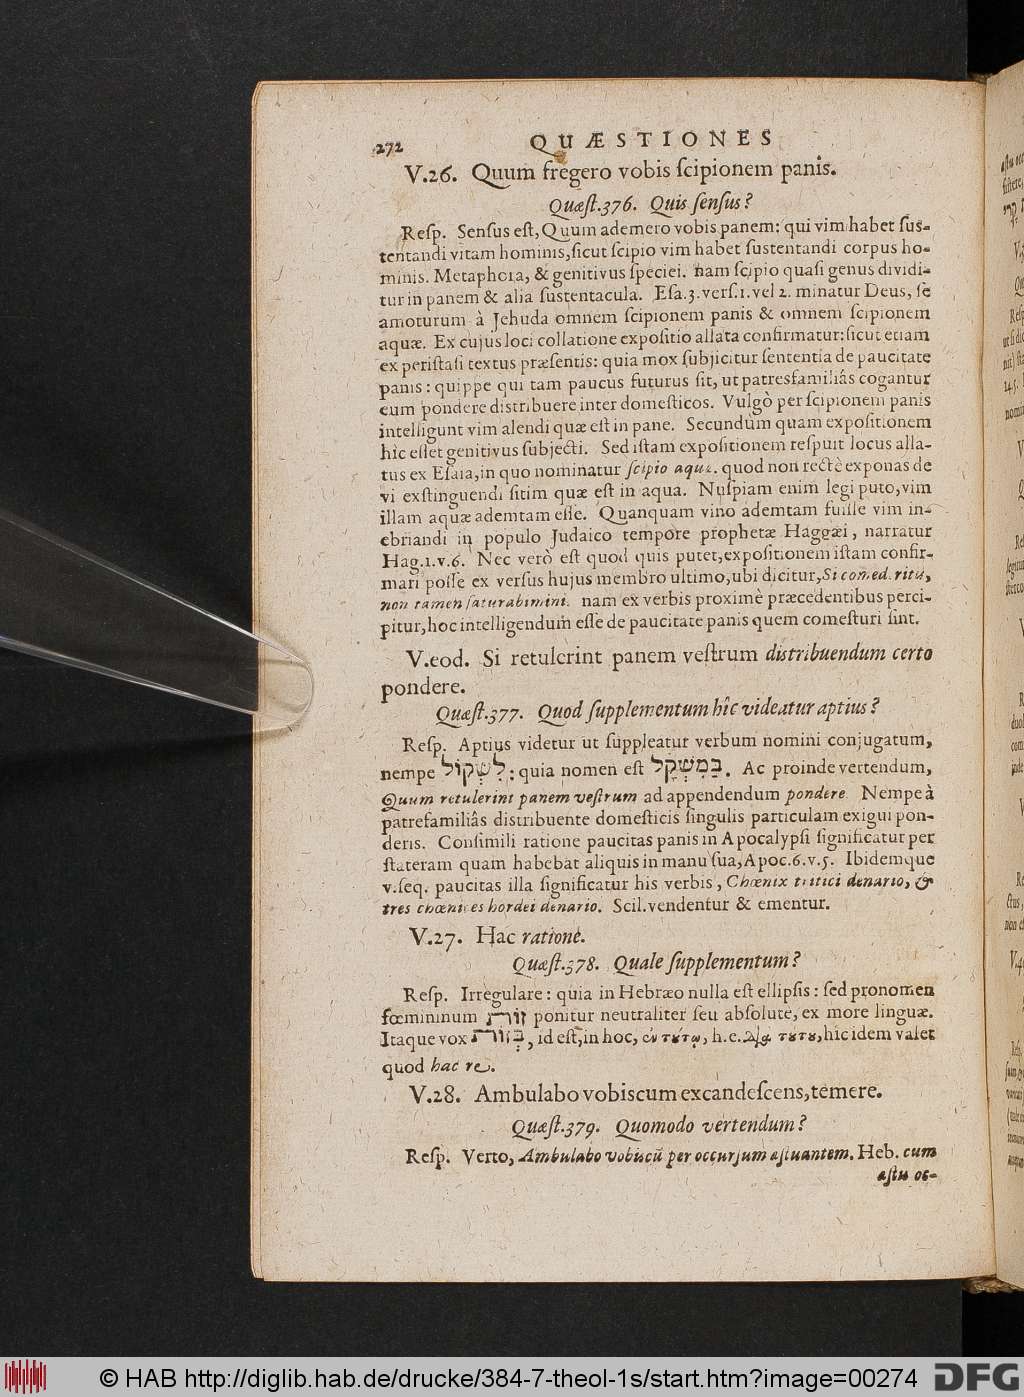 272 QUÆSTIONES
V.26. Quum fregero vobis ſcipionem panis.
Quæſt.376. Quis ſenſus?
Reſp. Senſus eſt, Quum ademero vobis panem: qui vim habet ſus-
tentandi vitam hominis, ſicut ſcipio vim habet ſustentandi corpus ho-
minis. Metaphora, & genitivus ſpeciei. nam ſcipio quaſi genus dividi-
tur in panem & alia ſustentacula. Eſa.3.verſ.1.vel 2. minatur Deus, ſe
amoturum à Jehuda omnem ſcipionem panis & omnem ſcipionem
aquæ. Ex cujus loci collatione expoſitio allata confirmatur: ſicut etiam
ex periſtaſi textus præſentis: quia mox ſubjicitur ſententia de paucitate
panis: quippe qui tam paucus futurus ſit, ut patresfamiliâs cogantur
eum pondere distribuere inter domeſticos. Vulgò per ſcipionem panis
intelligunt vim alendi quæ eſt in pane. Secundùm quam expoſitionem
hîc eſſet genitivus ſubjecti. Sed iſtam expoſitionem reſpuit locus alla-
tus ex Eſaia, in quo nominatur ſcipio aquæ. quod non rectè exponas de
vi exſtinguendi ſitim quæ eſt in aqua. Nuſpiam enim legi puto, vim
illam aquæ ademtam eſſe. Quanquam vino ademtam fuiſſe vim in-
ebriandi in populo Judaico tempore prophetæ Haggæi, narratur
Hag.1.v.6. Nec verò eſt quod quis putet, expoſitionem iſtam confir-
mari poſſe ex verſus hujus membro ultimo, ubi dicitur, Si comederitis,
non tamen ſaturabimini. nam ex verbis proximè præcedentibus perci-
pitur, hoc intelligendum eſſe de paucitate panis quem comeſturi ſint.
V.eod. Si retulerint panem veſtrum distribuendum certo
pondere.
Quæſt.377. Quod ſupplementum hîc videatur aptius?
Reſp. Aptius videtur ut ſuppleatur verbum nomini conjugatum,
nempe לִשְׁקוֹל: quia nomen eſt בַּמִּשְׁקָל. Ac proinde vertendum,
Quum retulerint panem veſtrum ad appendendum pondere. Nempe à
patrefamiliâs distribuente domeſticis ſingulis particulam exigui pon-
deris. Conſimili ratione paucitas panis in Apocalypſi ſignificatur per
ſtateram quam habebat aliquis in manu ſua, Apoc.6.v.5. Ibidemque
v.ſeq. paucitas illa ſignificatur his verbis, Chœnix tritici denario, &
tres chœnices hordei denario. Scil. vendentur & ementur.
V.27. Hac ratione.
Quæſt.378. Quale ſupplementum?
Reſp. Irregulare: quia in Hebræo nulla eſt ellipſis: ſed pronomen
fœmininum זֹאת ponitur neutraliter ſeu abſolute, ex more linguæ.
Itaque vox בְּזֹאת, id eſt, in hoc, ἐν τούτῳ, h.e. διὰ τούτου, hic idem valet
quod hac re.
V.28. Ambulabo vobiscum excandeſcens, temere.
Quæſt.379. Quomodo vertendum?
Reſp. Verto, Ambulabo vobiscũ per occurſum æſtuantem. Heb. cum
æſtu oc-
© HAB http://diglib.hab.de/drucke/384-7-theol-1s/start.htm?image=00274
DFG